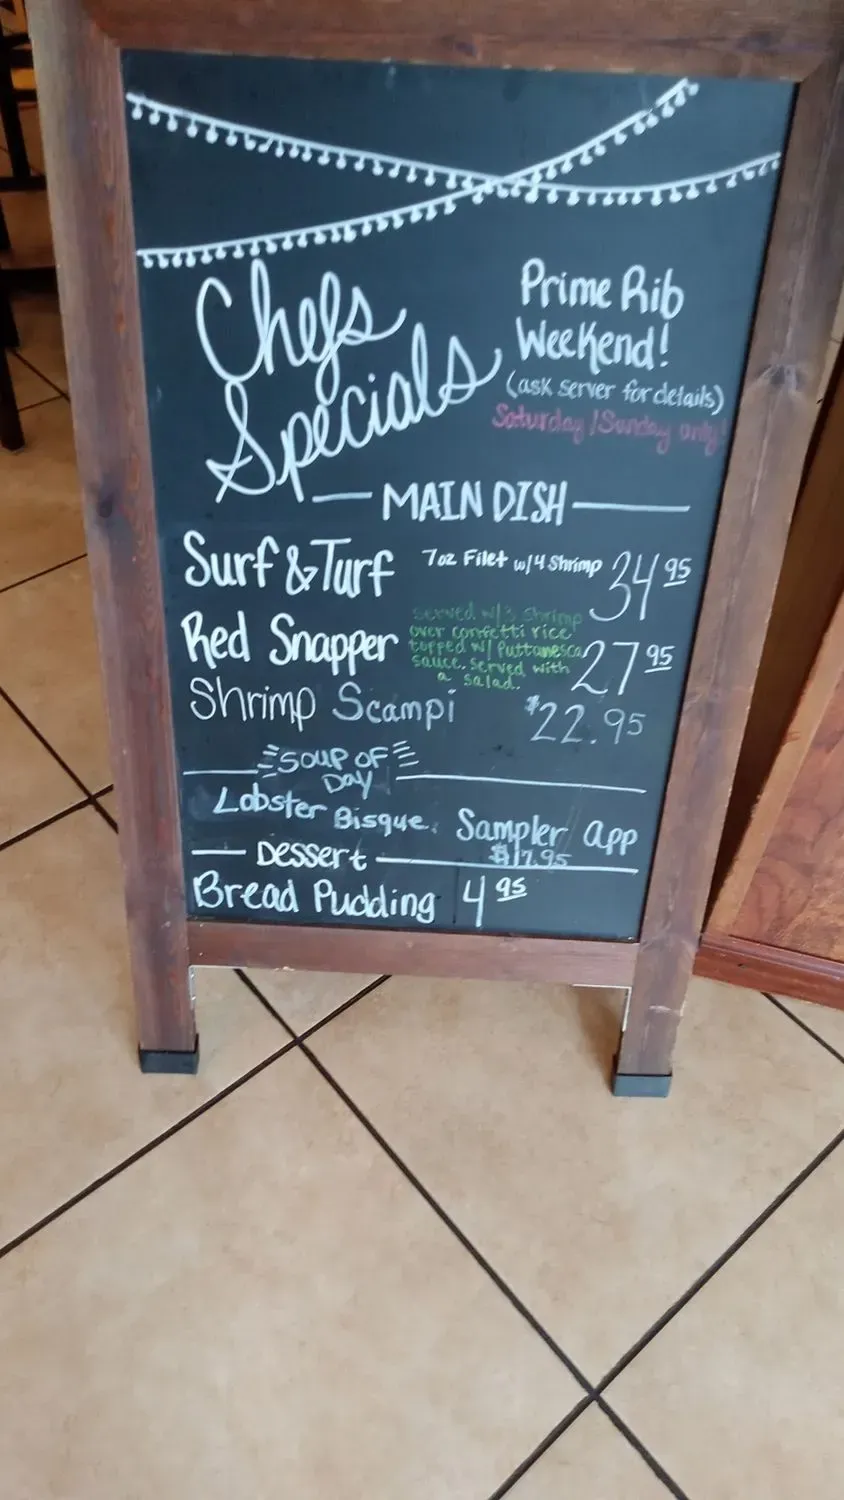 Chefs
Specials
Prime Rib
Weekend!
(ask server for details)
Saturday/Sunday only!
MAIN DISH
Surf & Turf 7oz Filet w/4 Shrimp 34 95
Red Snapper served w/3 shrimp
over confetti rice
topped w/ Puttanesca
sauce. served with
a salad.
27 95
Shrimp Scampi $22.95
SOUP OF
DAY
Lobster Bisque. Sampler app
$17.95
Dessert
Bread Pudding 4 95